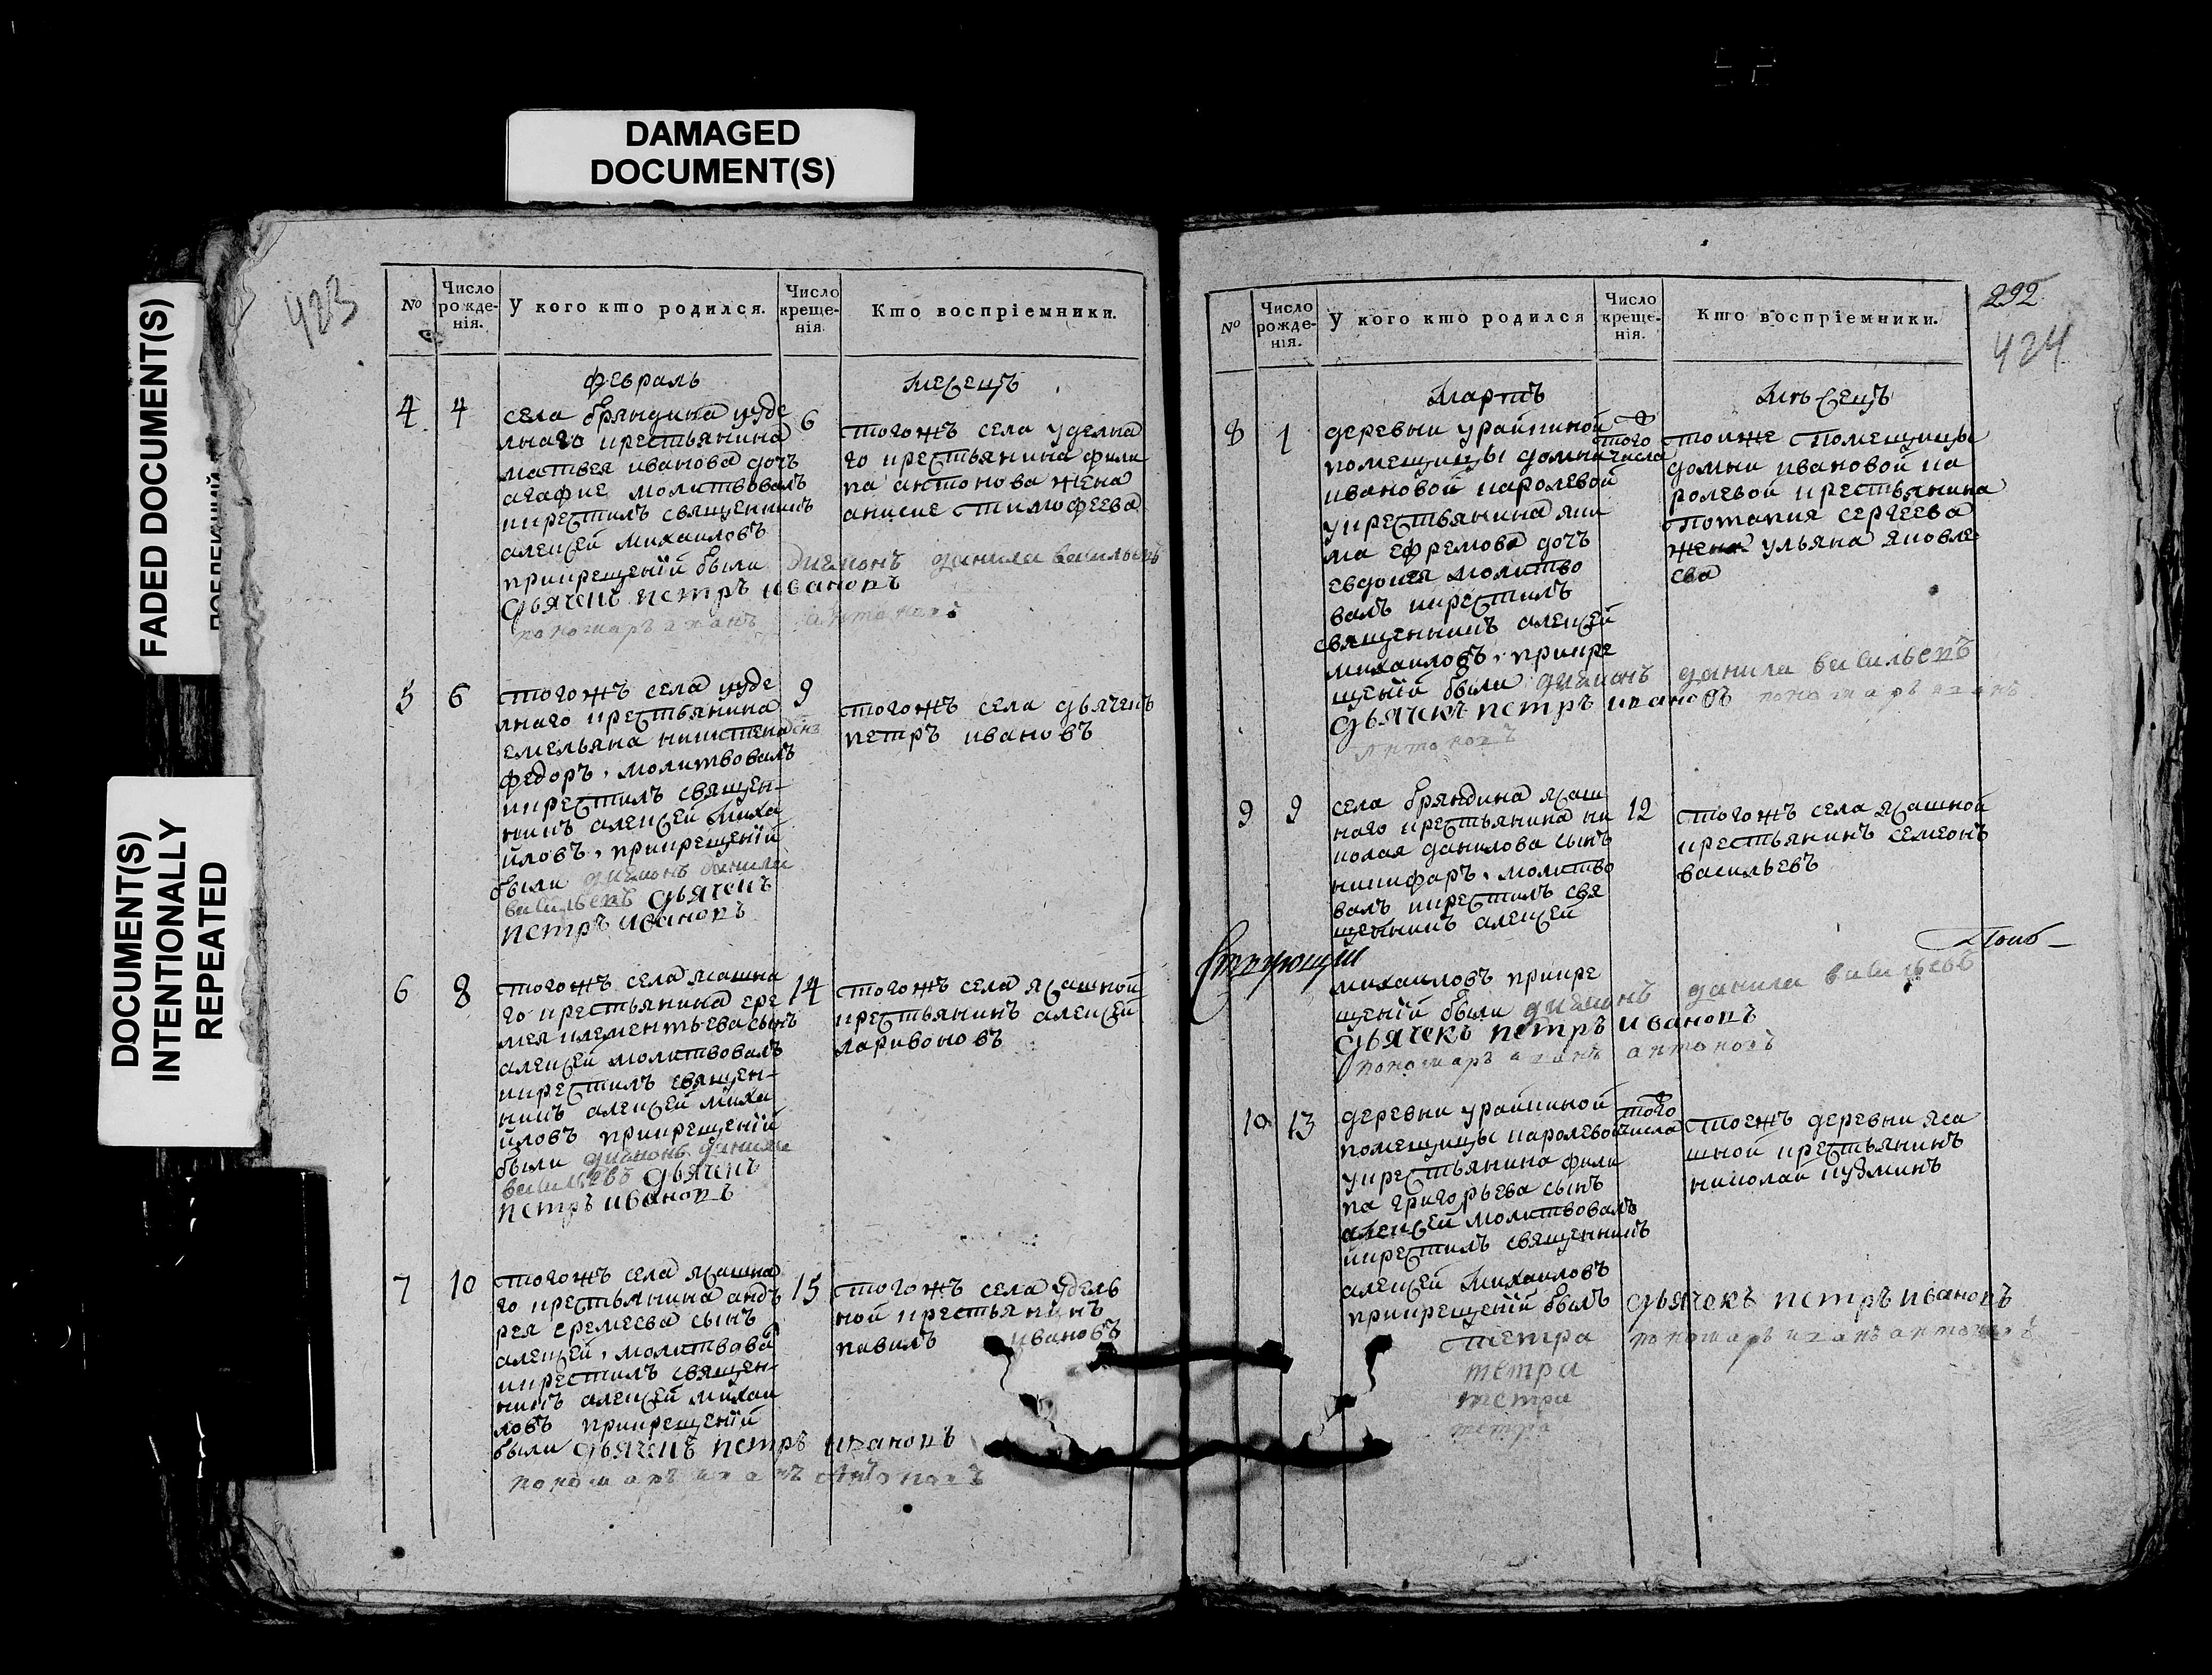 DAMAGED
DOCUMENT(S)
FADED DOCUMENT(S)
DOCUMENT(S)
INTENTIONALLY
REPEATED
423
№
Число рожде-нія.
У кого кто родился.
Число креще-нія.
Кто воспріемники.
февраль
месецъ
4
4
села бряндина уде
лнаго крестьянина
матвея иванова дочь
агафие молитвовалъ
икрестилъ священникъ
алексей михаиловъ
прикрещенїй были диаконъ данила васильевъ
дьячекъ петръ ивановъ
пономарь иванъ антоновъ
6
тогожъ села уделна
го крестьянина фили
па антонова жена
анисие тимофеева
5
6
тогожъ села уде
лнаго крестьянина
емельяна никитена сынъ
федоръ, молитвовалъ
икрестилъ священ-
никъ алексей миха
йловъ, прикрещенїй
были диаконъ данила
васильевъ дьячекъ
петръ ивановъ
9
тогожъ села дьячекъ
петръ ивановъ
6
8
тогожъ села ясашна
го крестьянина ере
мея клементьева сынъ
алексей молитвовалъ
икрестилъ священ-
никъ алексей миха
йловъ прикрещенїй
были диаконъ данила
васильевъ дьячекъ
петръ ивановъ
14
тогожъ села ясашной
крестьянинъ алексей
ларивоновъ
7
10
тогожъ села ясашна
го крестьянина анд
рея еремеева сынъ
алексей, молитвова
икрестилъ священ-
никъ алексей михаи
ловъ прикрещенїй
были дьячекъ петръ ивановъ
пономарь иванъ антоновъ
15
тогожъ села удель
ной крестьянинъ
павилъ ивановъ
292
424
№
Число рожде-нія.
У кого кто родился
Число креще-нія.
Кто воспріемники.
мартъ
мѣсецъ
8
1
деревни урайкиной
помещицы домны
ивановой каролевой
укрестьянина яки
ма ефремова дочь
евдокея молитво
валъ икрестилъ
священникъ алексей
михаиловъ, прикре
щенїй были диаконъ данила васильевъ
дьячекъ петръ ивановъ пономарь иванъ
антоновъ
того числа
тоиже помещицы
домны ивановой ка
ролевой крестьянина
потапия сергеева
жена ульяна яковле
ева
9
9
села бряндина ясаш
наго крестьянина ни
колая данилова сынъ
никифаръ, молитво
валъ икрестилъ свя
щенникъ алексей
михаиловъ прикре
щенїй были диаконъ данила васильевъ
дьячекъ петръ ивановъ
пономарь иванъ антоновъ
12
тогожъ села ясашной
крестьянинъ семионъ
васильевъ
10
13
деревни урайкиной
помещицы каролевой
укрестьянина фили
па григорьева сынъ
алексей молитвовалъ
икрестилъ священникъ
алексей михаиловъ
прикрещенїй былъ дьячекъ петръ ивановъ
пономарь иванъ антоновъ
того числа
тоежъ деревни яса
шной крестьянинъ
николай кузминъ